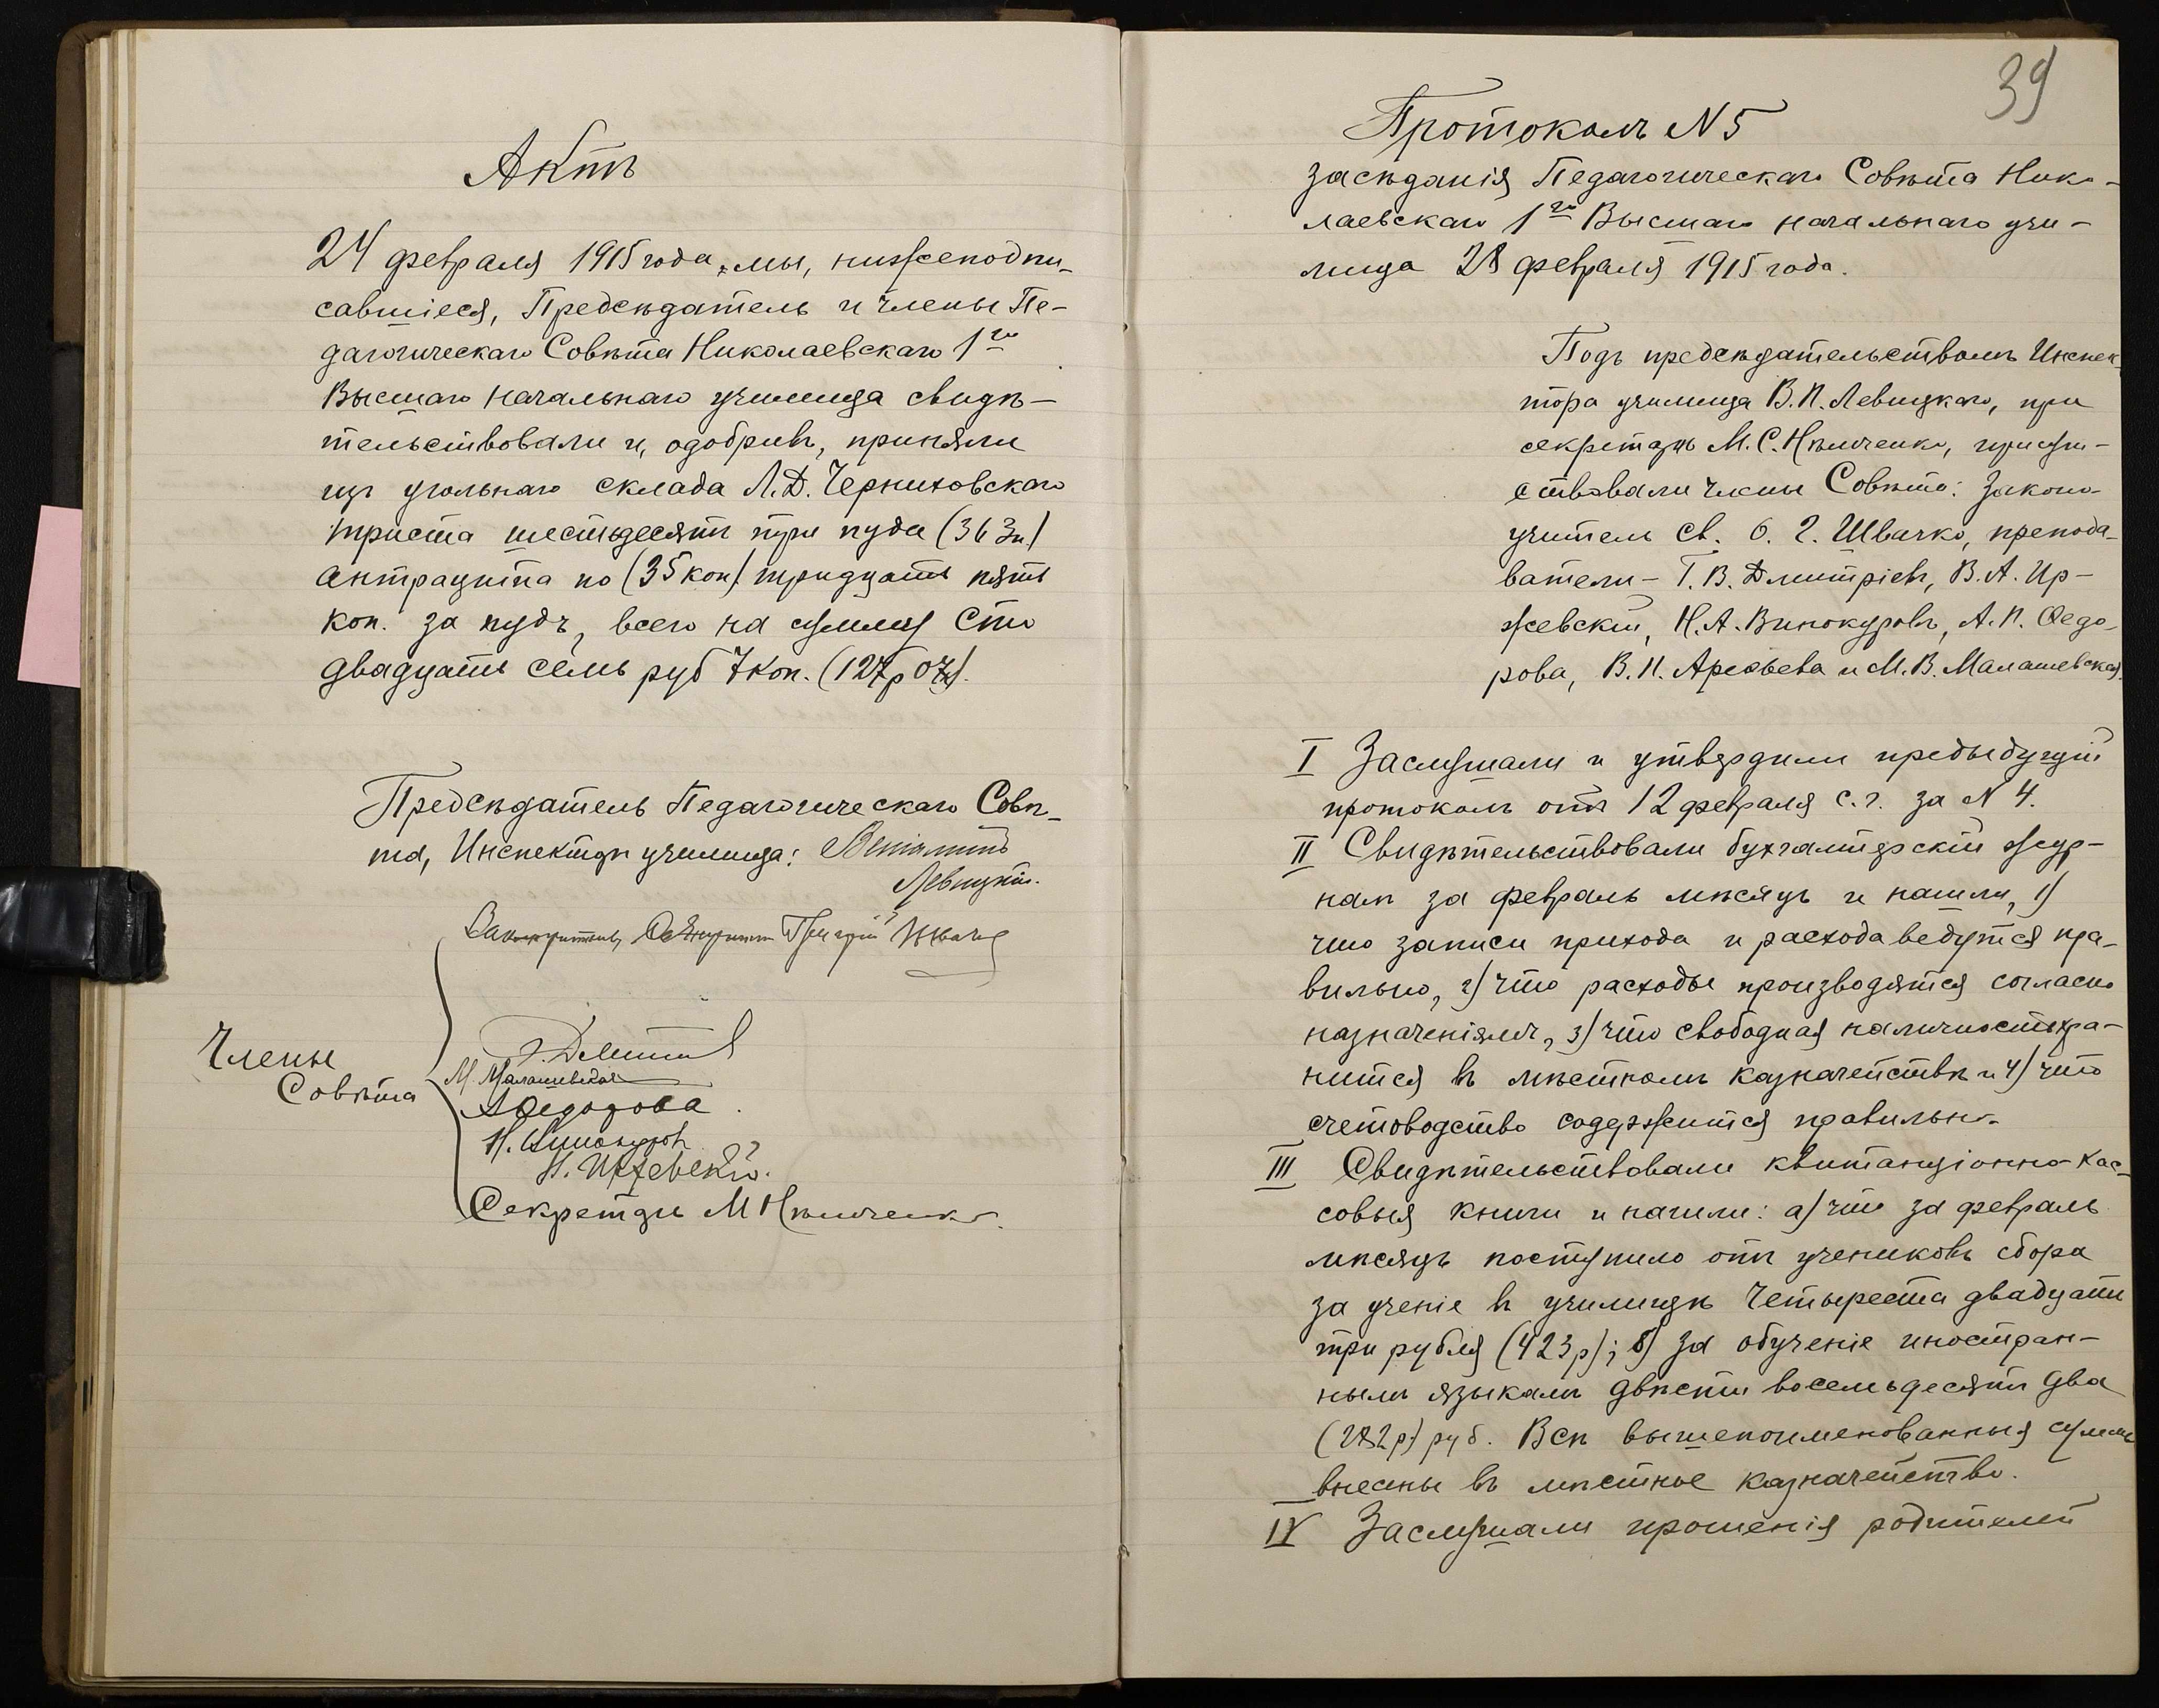 Актъ
24 февраля 1915 года, мы, нижеподпи-
савшіеся, Предсѣдатель и члены Пе-
дагогическаго Совѣта Николаевскаго 1го
Высшаго начальнаго училища свидѣ-
тельствовали и, одобривъ, приняли
изъ угольнаго склада Л.Д. Черниховскаго
триста шестьдесятъ три пуда (363 п)
антрацита по (35 коп) тридцать пять
коп. за пудъ, всего на сумму сто
двадцать семь руб 7 коп. (127 р 07к).
Предсѣдатель Педагогическаго Совѣ-
та, Инспекторъ училища: Веніаминъ
Левицкій.
Законоучитель, Священникъ Григорій Швачко
Члены
Совѣта
М. Малашевская
А Федорова
Н. Винокуровъ
Иржевскій.
Секретарь М Нѣмченко.
39
Протоколъ N 5
засѣданія Педагогическаго Совѣта Нико-
лаевскаго 1го Высшаго начальнаго учи-
лища 28 февраля 1915 года.
Подъ предсѣдательствомъ Инспек-
тора училища В.П. Левицкаго, при
секретарѣ М.С. Нѣмченко, присут-
ствовали члены Совѣта: законо-
учитель св. о. Г. Швачко, препода-
ватели – Г.В. Дмитріевъ, В.А. Ир-
жевскій, Н.А. Винокуровъ, А.П. Ѳедо-
рова, В.И. Арефьева и М.В. Малашевская.
I Заслушали и утвердили предыдущій
протоколъ отъ 12 февраля с.г. за N 4.
II Свидѣтельствовали бухгалтерскій жур-
налъ за февраль мѣсяцъ и нашли, 1)
что записи прихода и расхода ведутся пра-
вильно, 2) что расходы производятся согласно
назначеніямъ, 3) что свободная наличность хра-
нится въ мѣстномъ казначействѣ и 4) что
счетоводство содержится правильно.
III Свидѣтельствовали квитанціонно-кас-
совыя книги и нашли: а) что за февраль
мѣсяцъ поступило отъ учениковъ сбора
за ученіе въ училищѣ четыреста двадцать
три рубля (423 р); б) за обученіе иностран-
нымъ языкамъ двѣсти восемьдесятъ два
(282 р) руб. Всѣ вышепоименованныя суммы
внесены въ мѣстное казначейство.
IV Заслушали прошенія родителей